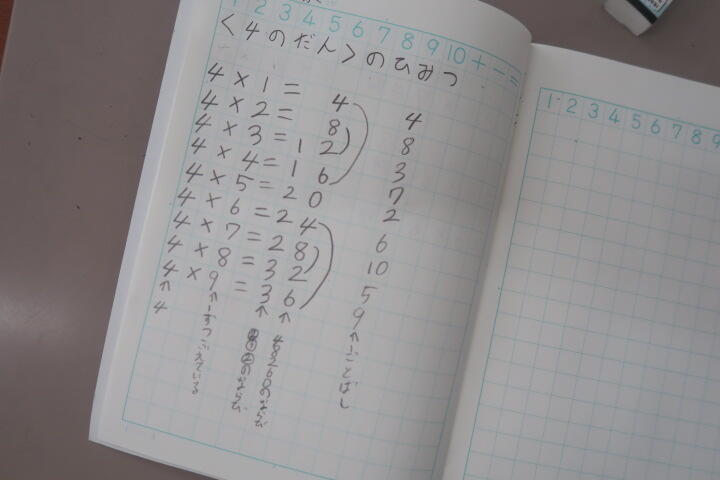 1 2 3 4 5 6 7 8 9 10 + - =
<4のだん>のひみつ
4 × 1 = 4 4
4 × 2 = 8 8
4 × 3 = 12 3
4 × 4 = 16 7
4 × 5 = 20 2
4 × 6 = 24 6
4 × 7 = 28 10
4 × 8 = 32 5
4 × 9 = 36 9
↑ ↑ ↑ ↑ ↑
4
1ずつふえている
のならび
48260のならび
1ことばし
1 2 3 4 5 6 7 8 9